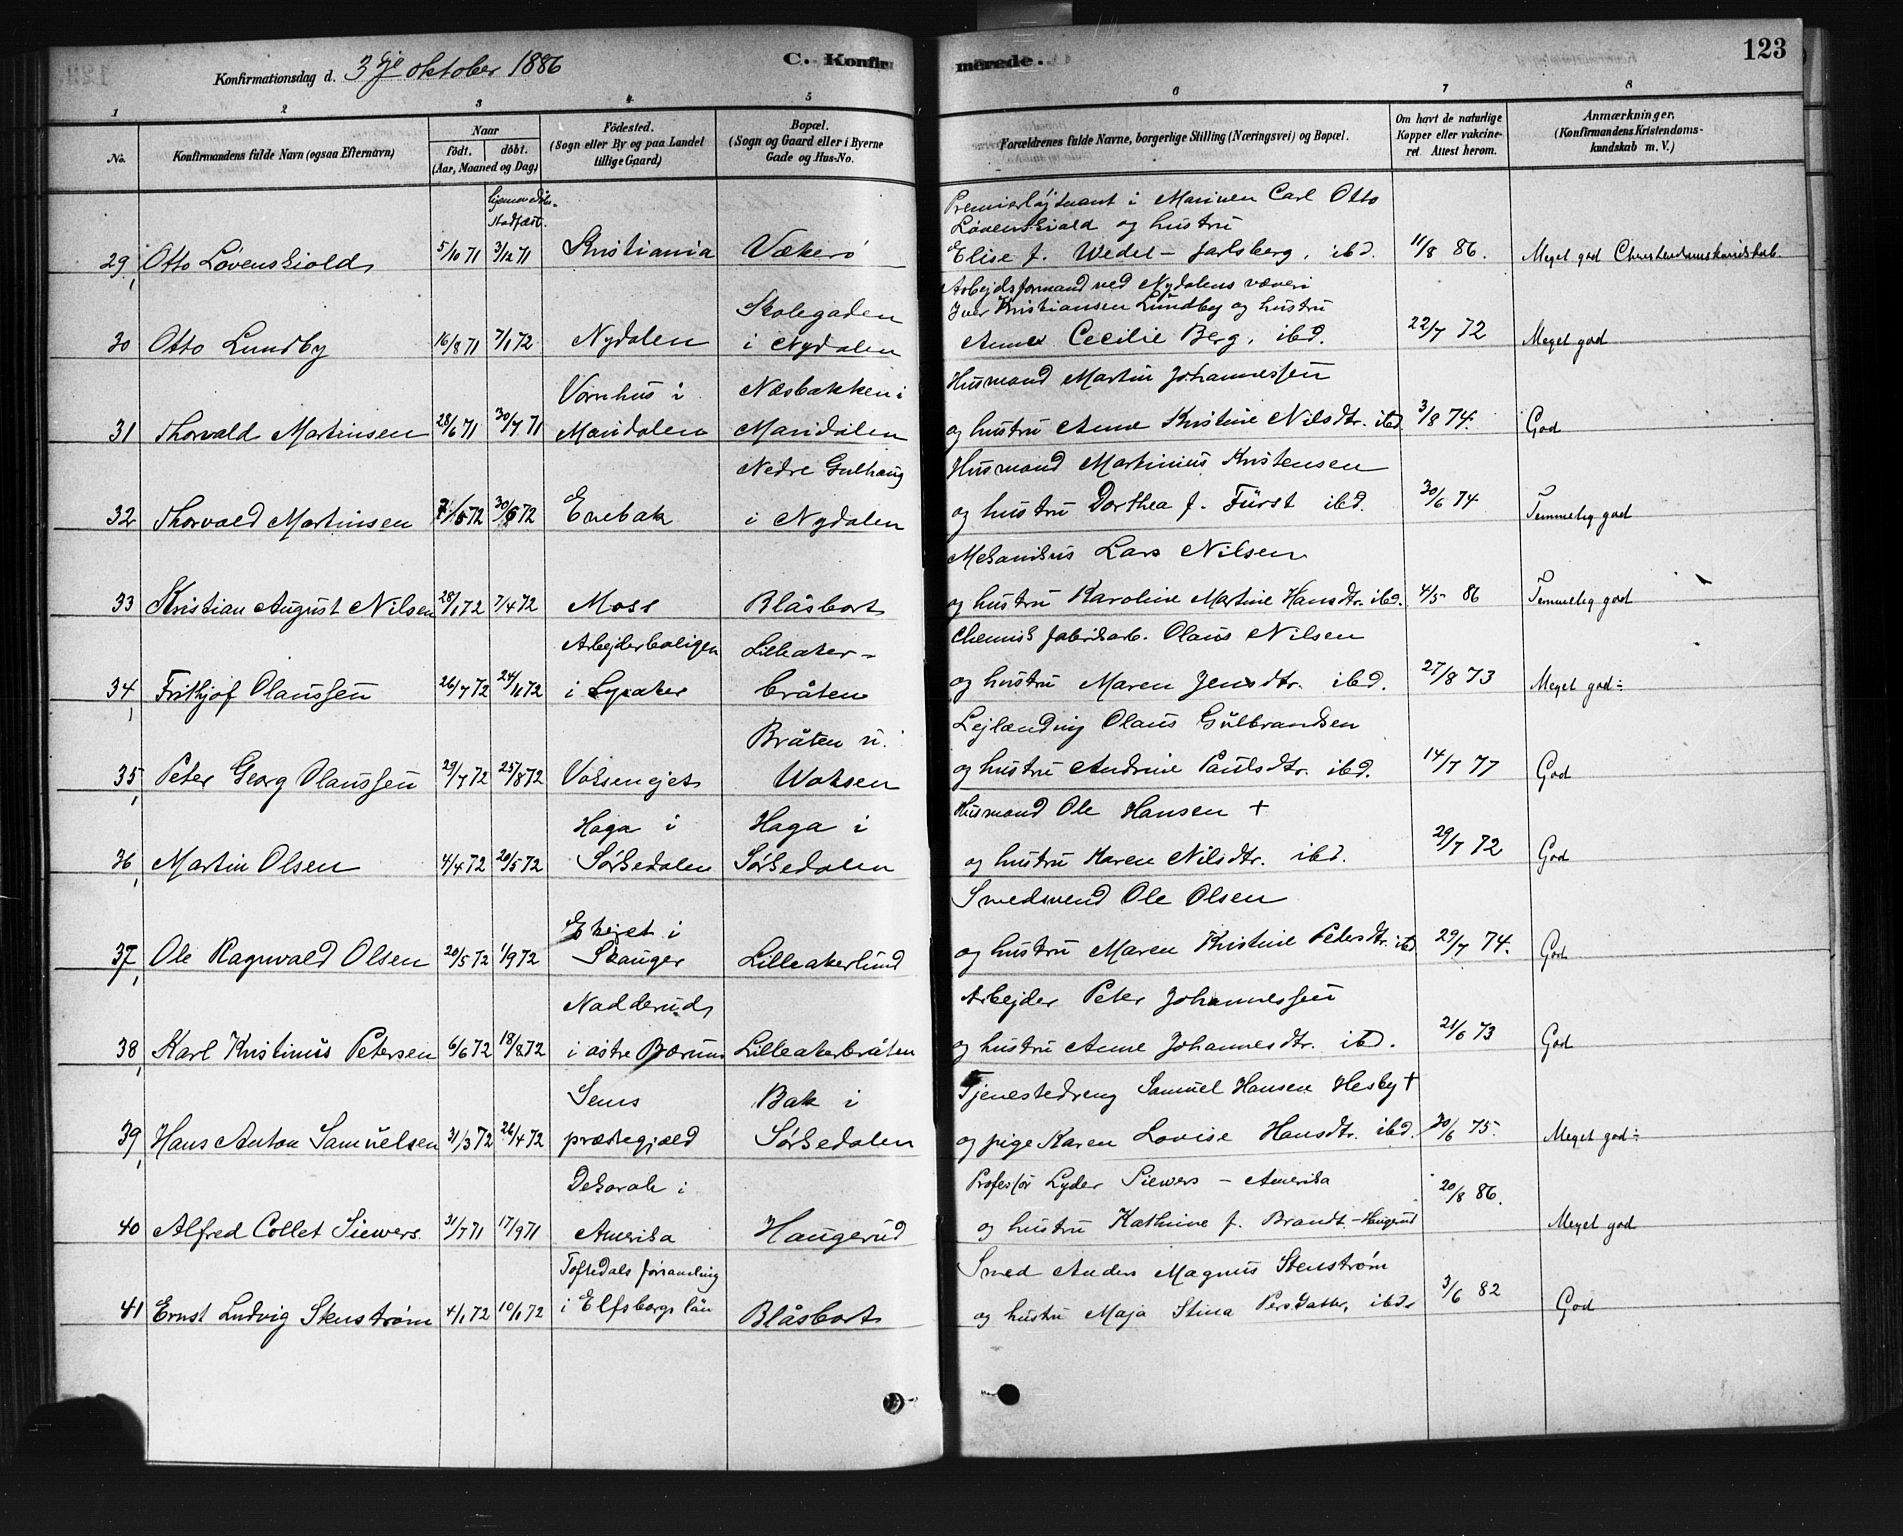 123
Konfirmationsdag d. 3dje oktober 1886
C. Konfir
merede.
1 2 3 4 5 6 7 8
No.
Konfirmandens fulde Navn (ogsaa Efternavn)
Naar
födt. döbt.
(Aar, Maaned og Dag)
Födested.
(Sogn eller By og paa Landet
tillige Gaard)
Bopæl.
(Sogn og Gaard eller i Byerne
Gade og Hus-No.
Forældrenes fulde Navne, borgerlige Stilling (Næringsvei) og Bopæl.
Om havt de naturlige
Kopper eller vakcine-
ret Attest herom.
Anmærkninger,
(Konfirmandens Kristendoms-
kundskab m. V.)
hjemmedöbt
Stadfæst.
Premierløjtnant i Marinen Carl Otto
Løvenskiold og hustru
29, Otto Løvenskiold 5/10 71 3/12 71 Kristiania Vækerø Elise f. Wedel-Jarlsberg, ibd. 11/8 86. Meget god Christendomskundskab.
Arbejdsformand ved Nydalens væveri
Skolegaden Iver Kristiansen Lundby og hustru
30 Otto Lundby 16/8 71 7/1 72 Nydalen i Nydalen Anne Cecilie Berg, ibd. 22/7 72 Meget god
Vornhus i Næsbakken i Husmand Martin Johannessen
31 Thorvald Martinsen 28/6 71 30/7 71 Maridalen Maridalen og hustru Anne Kristine Nilsdtr. ibd 3/8 74. God
Nedre Gulhaug Husmand Martinius Kristensen
32 Thorvald Martinsen 1/6 72 30/6 72 Enebak i Nydalen og hustru Dorthea f. Fürst ibd. 30/6 74 Temmelig god
Mekanikus Lars Nilsen
33 Kristian August Nilsen 28/1 72 7/4 72 Moss Blåsbort og hustru Karoline Martine Hansdtr. ibd. 4/5 86 Temmelig god
Arbejderboligen Lilleaker- Chemisk fabrikarb. Olaus Nilsen
34, Frithjof Olaussen 26/7 72 24/11 72 i Lysaker bråten og hustru Maren Jensdtr. ibd. 27/8 73 Meget god÷
Bråten u. Lejlænding Olaus Gulbrandsen
35, Peter Georg Olaussen 29/7 72 25/8 72 Voksenejet Woksen og hustru Andrine Paulsdtr. ibd. 14/7 77 God
Haga i Haga i Husmand Ole Hansen +
36, Martin Olsen 4/4 72 20/5 72 Sørkedalen Sørkedalen og hustru Karen Nilsdtr. ibd. 29/7 72 God
Smedsvend Ole Olsen
37, Ole Ragnvald Olsen 20/5 72 1/9 72 Ekejet i Skauger Lilleakerlund og hustru Maren Kristine Pedersdtr. ibd 29/7 74. God
Nadderud Arbejder Peter Johannessen
38, Karl Kristinus Petersen 6/6 72 18/8 72 i østre Bærum Lilleakerbråten og hustru Anne Johannesdtr. ibd. 21/6 73 God
Sems Bak i Tjenestedreng Samuel Hansen Hesby +
39, Hans Anton Samuelsen 31/3 72 26/4 72 præstegjæld Sørkedalen og pige Karen Lovise Hansdtr. ibd. 30/6 75. Meget god÷
Dekorah i Professor Lyder Siewers - Amerika
40 Alfred Collet Siewers. 31/7 71 17/9 71 Amerika Haugerud og hustru Kathrine f. Brandt - Haugerud 20/8 86. Meget god
Toftedals församling Smed Anders Magnus Stenstrøm
41 Ernst Ludvig Stenstrøm 4/1 72 10/1 72 i Elfsborgs län Blåsbort og hustru Maja Stina Persdatter, ibd. 3/6 82 God